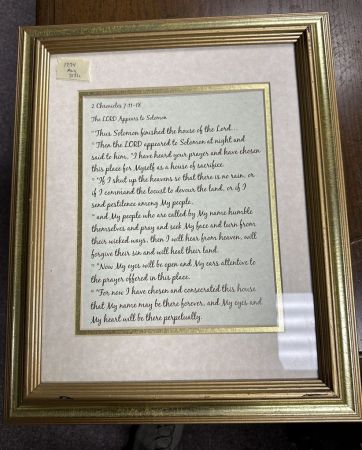 2 Chronicles 7:11-18
The LORD Appears to Solomon
"Thus Solomon finished the house of the Lord...
"Then the LORD appeared to Solomon at night and
said to him, "I have heard your prayer and have chosen
this place for Myself as a house of sacrifice.
"If I shut up the heavens so that there is no rain, or
if I command the locust to devour the land, or if I
send pestilence among My people,
and My people who are called by My name humble
themselves and pray and seek My face and turn from
their wicked ways, then I will hear from heaven, will
forgive their sin and will heal their land.
"Now My eyes will be open and My ears attentive to
the prayer offered in this place.
"For now I have chosen and consecrated this house
that My name may be there forever, and My eyes and
My heart will be there perpetually.